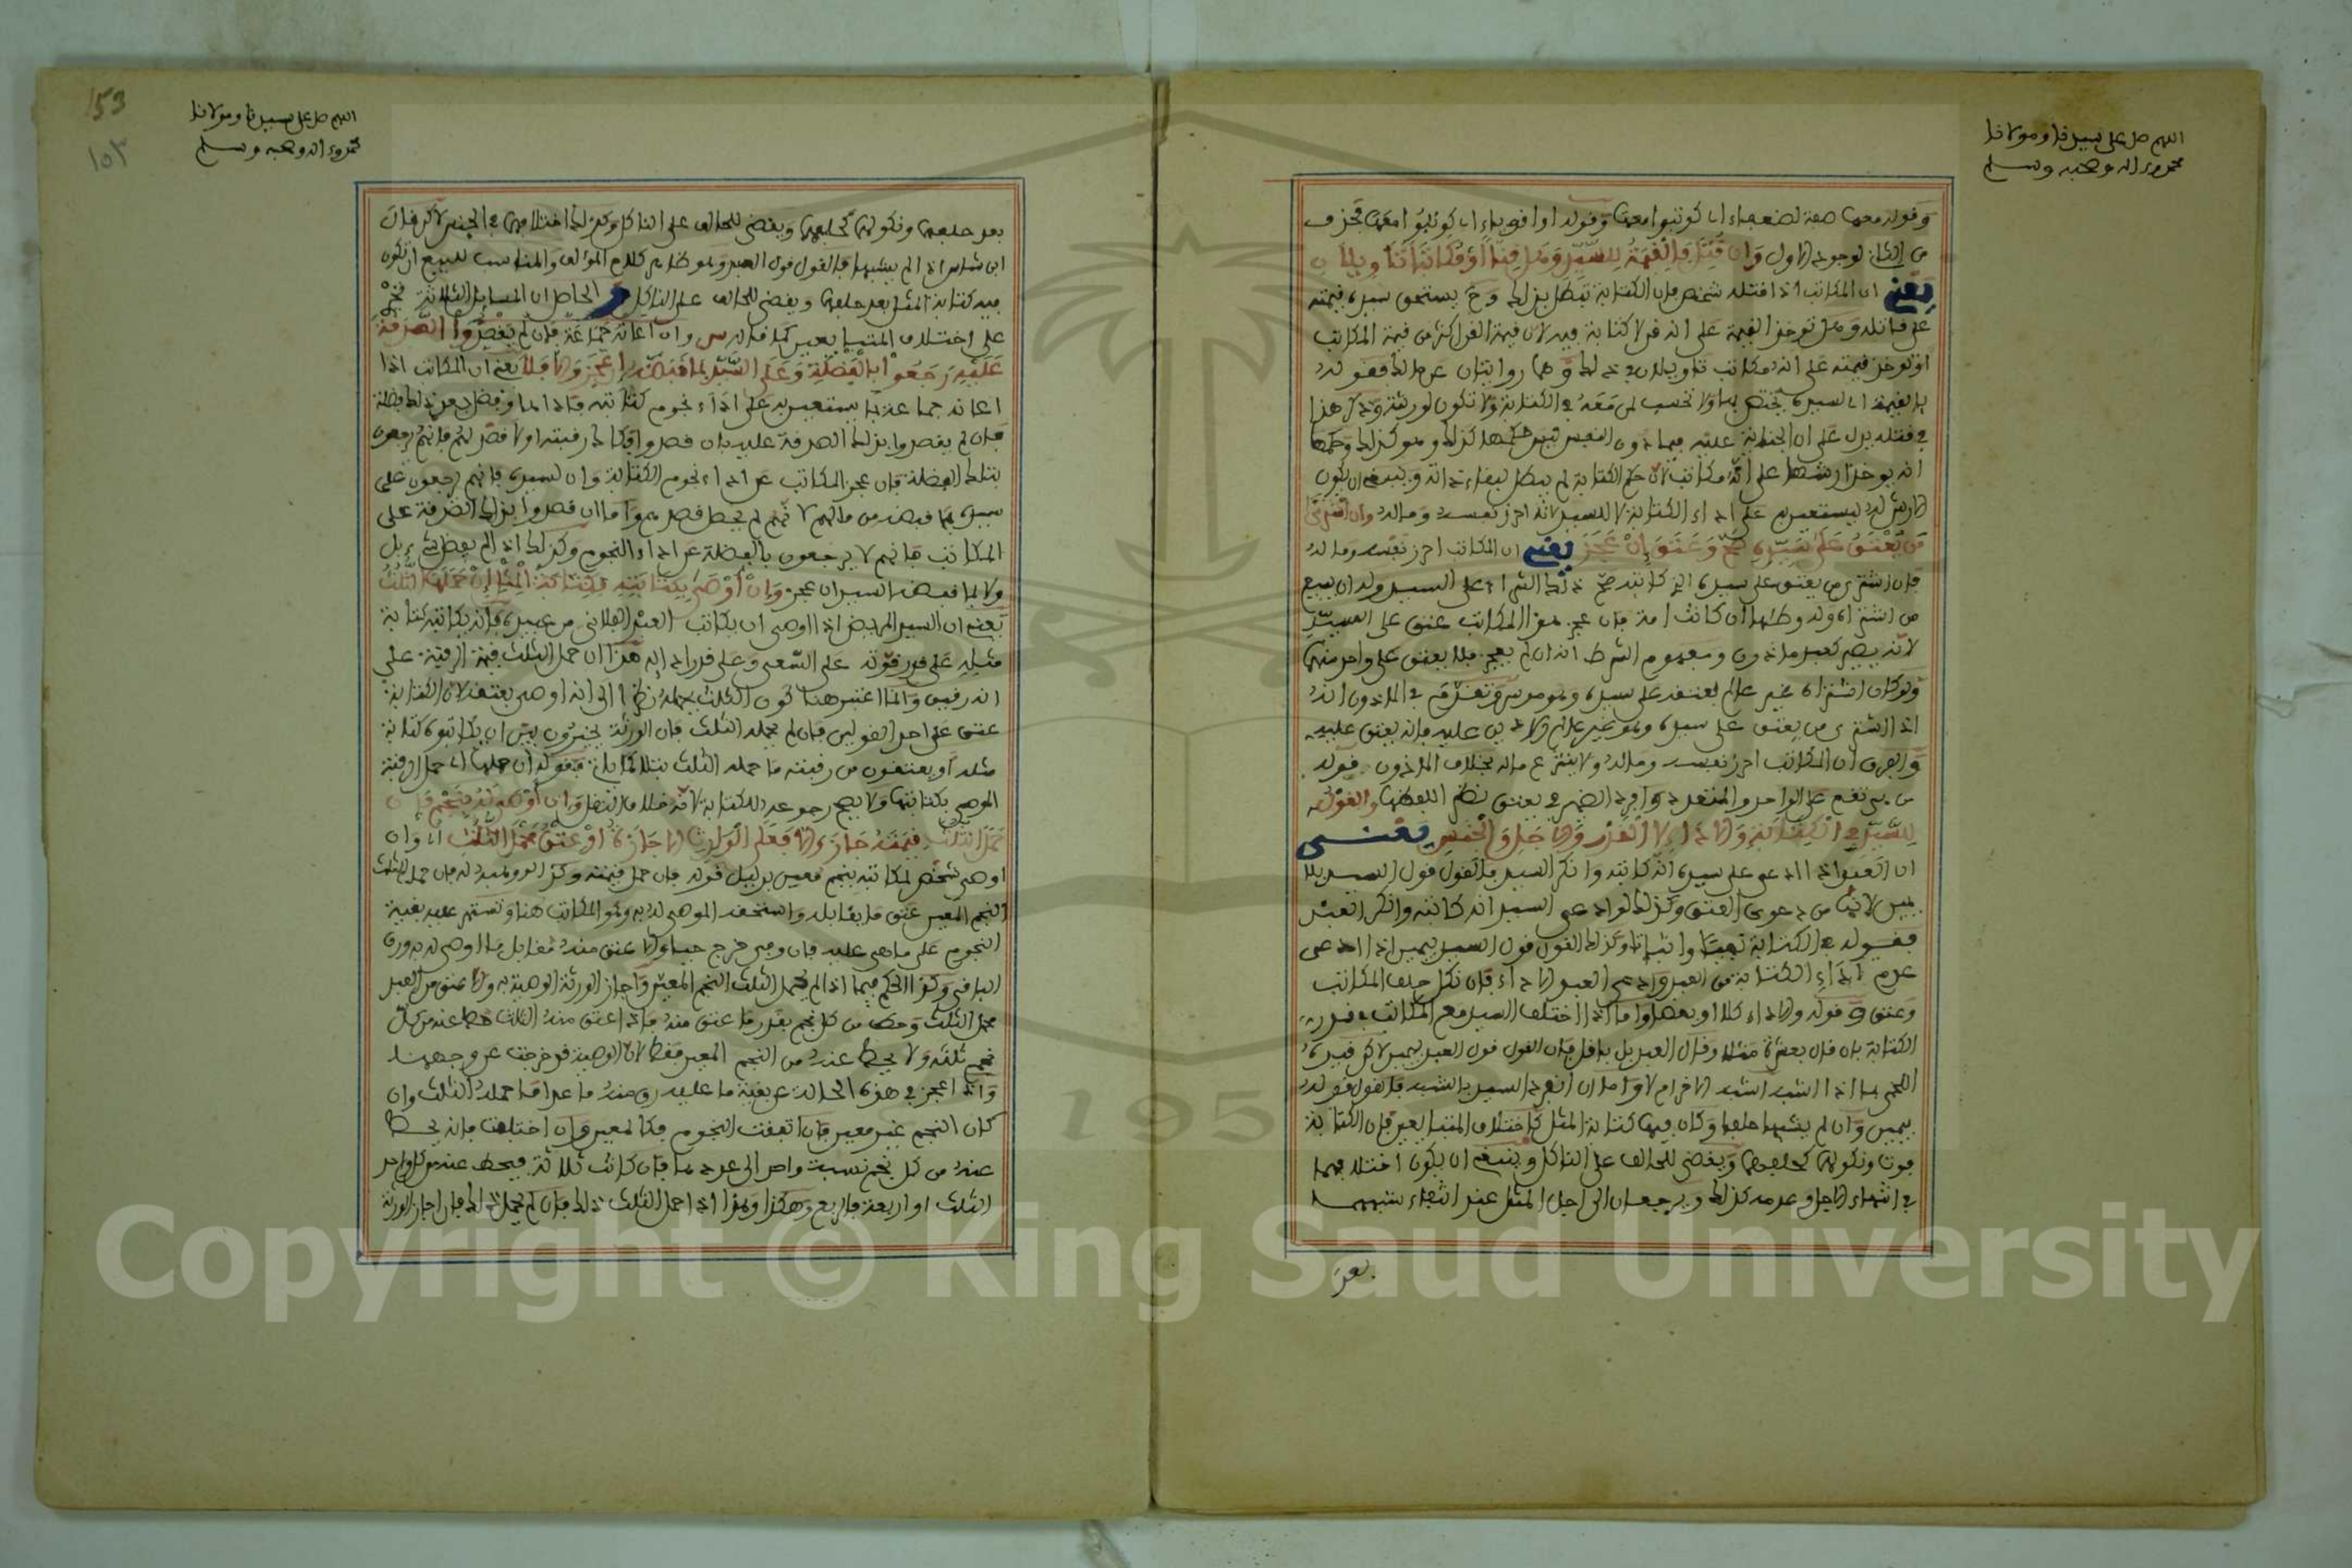 اللهم صل على سيدنا ومولانا
محمد وءاله وصحبه وسلم
وقوله معهما صفة لضعفاء اي كوتبوا معهما وقوله او اقوياء اي كوتبوا معهما فحذف
من الثاني لوجوده في الاول وان قتل فالقيمة للسيد وهل قنا او مكاتبا تاويلان
يعني ان المكاتب اذا قتله شخص فان الكتابة تبطل بذلك وح يستحق سيده قيمته
على قاتله وهل توخذ القيمة على انه قن لا كتابة فيه لان قيمة القن اكثر من قيمة المكاتب
او توخذ قيمته على انه مكاتب تاويلان في ذلك وهما روايتان عن مالك فقوله
فالقيمة اي لسيده يختص بها ولا تحسب لمن معه في الكتابة ولا تكون لورثته وذكر هذا
في قتله يدل على ان الجناية عليه فيما دون النفس ليس حكمها كذلك وهو كذلك وحكمها
انه يوخذ ارشها على انه مكاتب لان حكم الكتابة لم يبطل لبقاء ذاته وينبغي ان يكون
الارش له يستعين به على اداء الكتابة لا للسيد لانه احرز نفسه وماله وان اشترى
من يعتق على سيده صح وعتق ان عجز يعني ان المكاتب احرز نفسه وماله
فان اشترى من يعتق على سيده الذي كاتبه صح ذلك الشراء على السيد وله ان يبيع
من اشتراه وله وطئها ان كانت امة فان عجز هذا المكاتب عتق على السيد
لانه يصير كعبد ماذون ومفهوم الشرط انه ان لم يعجز فلا يعتق على واحد منهما
ولو كان اشتراه غير عالم بعتقه على سيده وهو موسر وتقدم في الماذون انه
اذا اشترى من يعتق على سيده وهو غير عالم ولا دين عليه فانه يعتق عليه
والفرق ان المكاتب احرز نفسه وماله ولا ينتزع ماله بخلاف الماذون قوله
من يعتق على الواحد والمتعدد وافرد الضمير في يعتق نظرا للفظها والقول
للسيد في الكتابة والاداء لا القدر والاجل والجنس يعني
ان العبد اذا ادعى على سيده انه كاتبه وانكر السيد فالقول قول السيد بلا
يمين لانها من دعوى العتق وكذلك لو ادعى السيد انه كاتبه وانكر العبد
فقوله في الكتابة نفيا واثباتا وكذلك القول قول السيد بيمين اذا ادعى
عدم اداء الكتابة من العبد وادعى العبد الاداء فان نكل حلف المكاتب
وعتق وقوله والاداء كلا او بعضا واما اذا اختلف السيد مع المكاتب في قدر
الكتابة بان قال بعشرة مثلا وقال العبد بل باقل فان القول قول العبد بيمين لاكن قيده
اللخمي بما اذا اشبه اشبه الاخر ام لا واما ان انفرد السيد بالشبه فالقول قوله
بيمين وان لم يشبها حلفا وكان فيها كتابة المثل كاختلاف المتبايعين فان الكتابة
فوت ونكولهما كحلفهما ويقضى للحالف على الناكل وينبغي ان يكون اختلافهما
في انتهاء الاجل وعدمه كذلك ويرجعان الى اجل المثل عند انتفاء شبههما
بعد
153
١٥٣
اللهم صل على سيدنا ومولانا
محمد وءاله وصحبه وسلم
بعد حلفهما ونكولهما كحلفهما ويقضى للحالف على الناكل وكذلك اختلافهما في الجنس لاكن قال
ابن شاس اذا لم يشبها فالقول قول العبد وهو ظاهر كلام المؤلف والمناسب للبيع ان تكون
فيه كتابة المثل بعد حلفهما ويقضى للحالف على الناكل و الحاصل ان المسايل الثلاثة تجري
على اختلاف المتبايعين كما قاله س وان اعانه جماعة فان لم يقصدوا الصدقة
عليه رجعوا بالفضلة وعلى السيد بما قبضه ان عجز والا فلا يعني ان المكاتب اذا
اعانه جماعة بما يستعين به على اداء نجوم كتابته فاداها وفضل عن ذلك فضلة
فان لم يقصدوا بذلك الصدقة عليه بان قصدوا فكاك رقبته او لا قصد لهم فانهم يرجعون
بتلك الفضلة فان عجز المكاتب عن اداء نجوم الكتابة وان لسيده فانهم يرجعون على
سيده بما قبضه من مالهم لانهم لم يحصل قصدهم واما ان قصدوا بذلك الصدقة على
المكاتب فانهم لا يرجعون بالفضلة عن اداء النجوم وكذلك اذا لم يفضل شيء بل
ولا بما قبضه السيد ان عجز وان اوصى بكتابته فكتابة المثل ان حملها الثلث
يعني ان السيد المريض اذا اوصى ان يكاتب العبد الفلاني من عبيده فانه يكاتب كتابة
مثله على قدر قوته على السعي وعلى قدر ادائه هذا ان حمل الثلث قيمة الرقبة على
انه رقيق وانما اعتبر هنا كون الثلث يحمله نظرا الى انه اوصى بعتقه لان الكتابة
عتق على احد القولين فان لم يحمله الثلث فان الورثة يخيرون بين ان يكاتبوه كتابة
مثله او يعتقون من رقبته ما حمله الثلث بتلا كما ياتي فقوله ان حملها اي حمل الرقبة
الموصى بكتابتها ولا يصح رجوعه للكتابة لانه خلاف النقل وان اوصى له بنجم فان
حمل الثلث قيمته جازت والا فعلى الوارث الاجازة او عتق محمل الثلث اي وان
اوصى شخص لمكاتبه بنجم معين بدليل قوله فان حمل قيمته وكذا لو وهبه له فان حمل الثلث
النجم المعين عتق ما يقابله واستحقه الموصى له به وهو المكاتب هنا وتستمر عليه بقية
النجوم على ما هي عليه فان وفى خرج حرا والا عتق منه مقابل ما اوصى له به ورق
الباقي وكذا الحكم فيما اذا لم يحمل الثلث النجم المعين واجاز الورثة الوصية به والا عتق من العبد
محمل الثلث وحط من كل نجم بقدر ما عتق منه فاذا عتق منه الثلث حط عنه من كل
نجم ثلثه ولا يحط عنه من النجم المعين فقط لان الوصية قد خرجت عن وجهها
واذا عجز في هذه الحالة عن بقية ما عليه رق منه ما عدا ما حمله الثلث وان
كان النجم غير معين فان اتفقت النجوم فكالمعين وان اختلفت فانه يحط
عنه من كل نجم نسبة واحد الى عددها فان كانت ثلاثة فيحط عنه من كل واحد
الثلث او اربعة فالربع وهكذا وهذا اذا حمل الثلث ذلك فان لم يحمل ذلك فان اجاز الورثة
Copyright © King Saud University
195